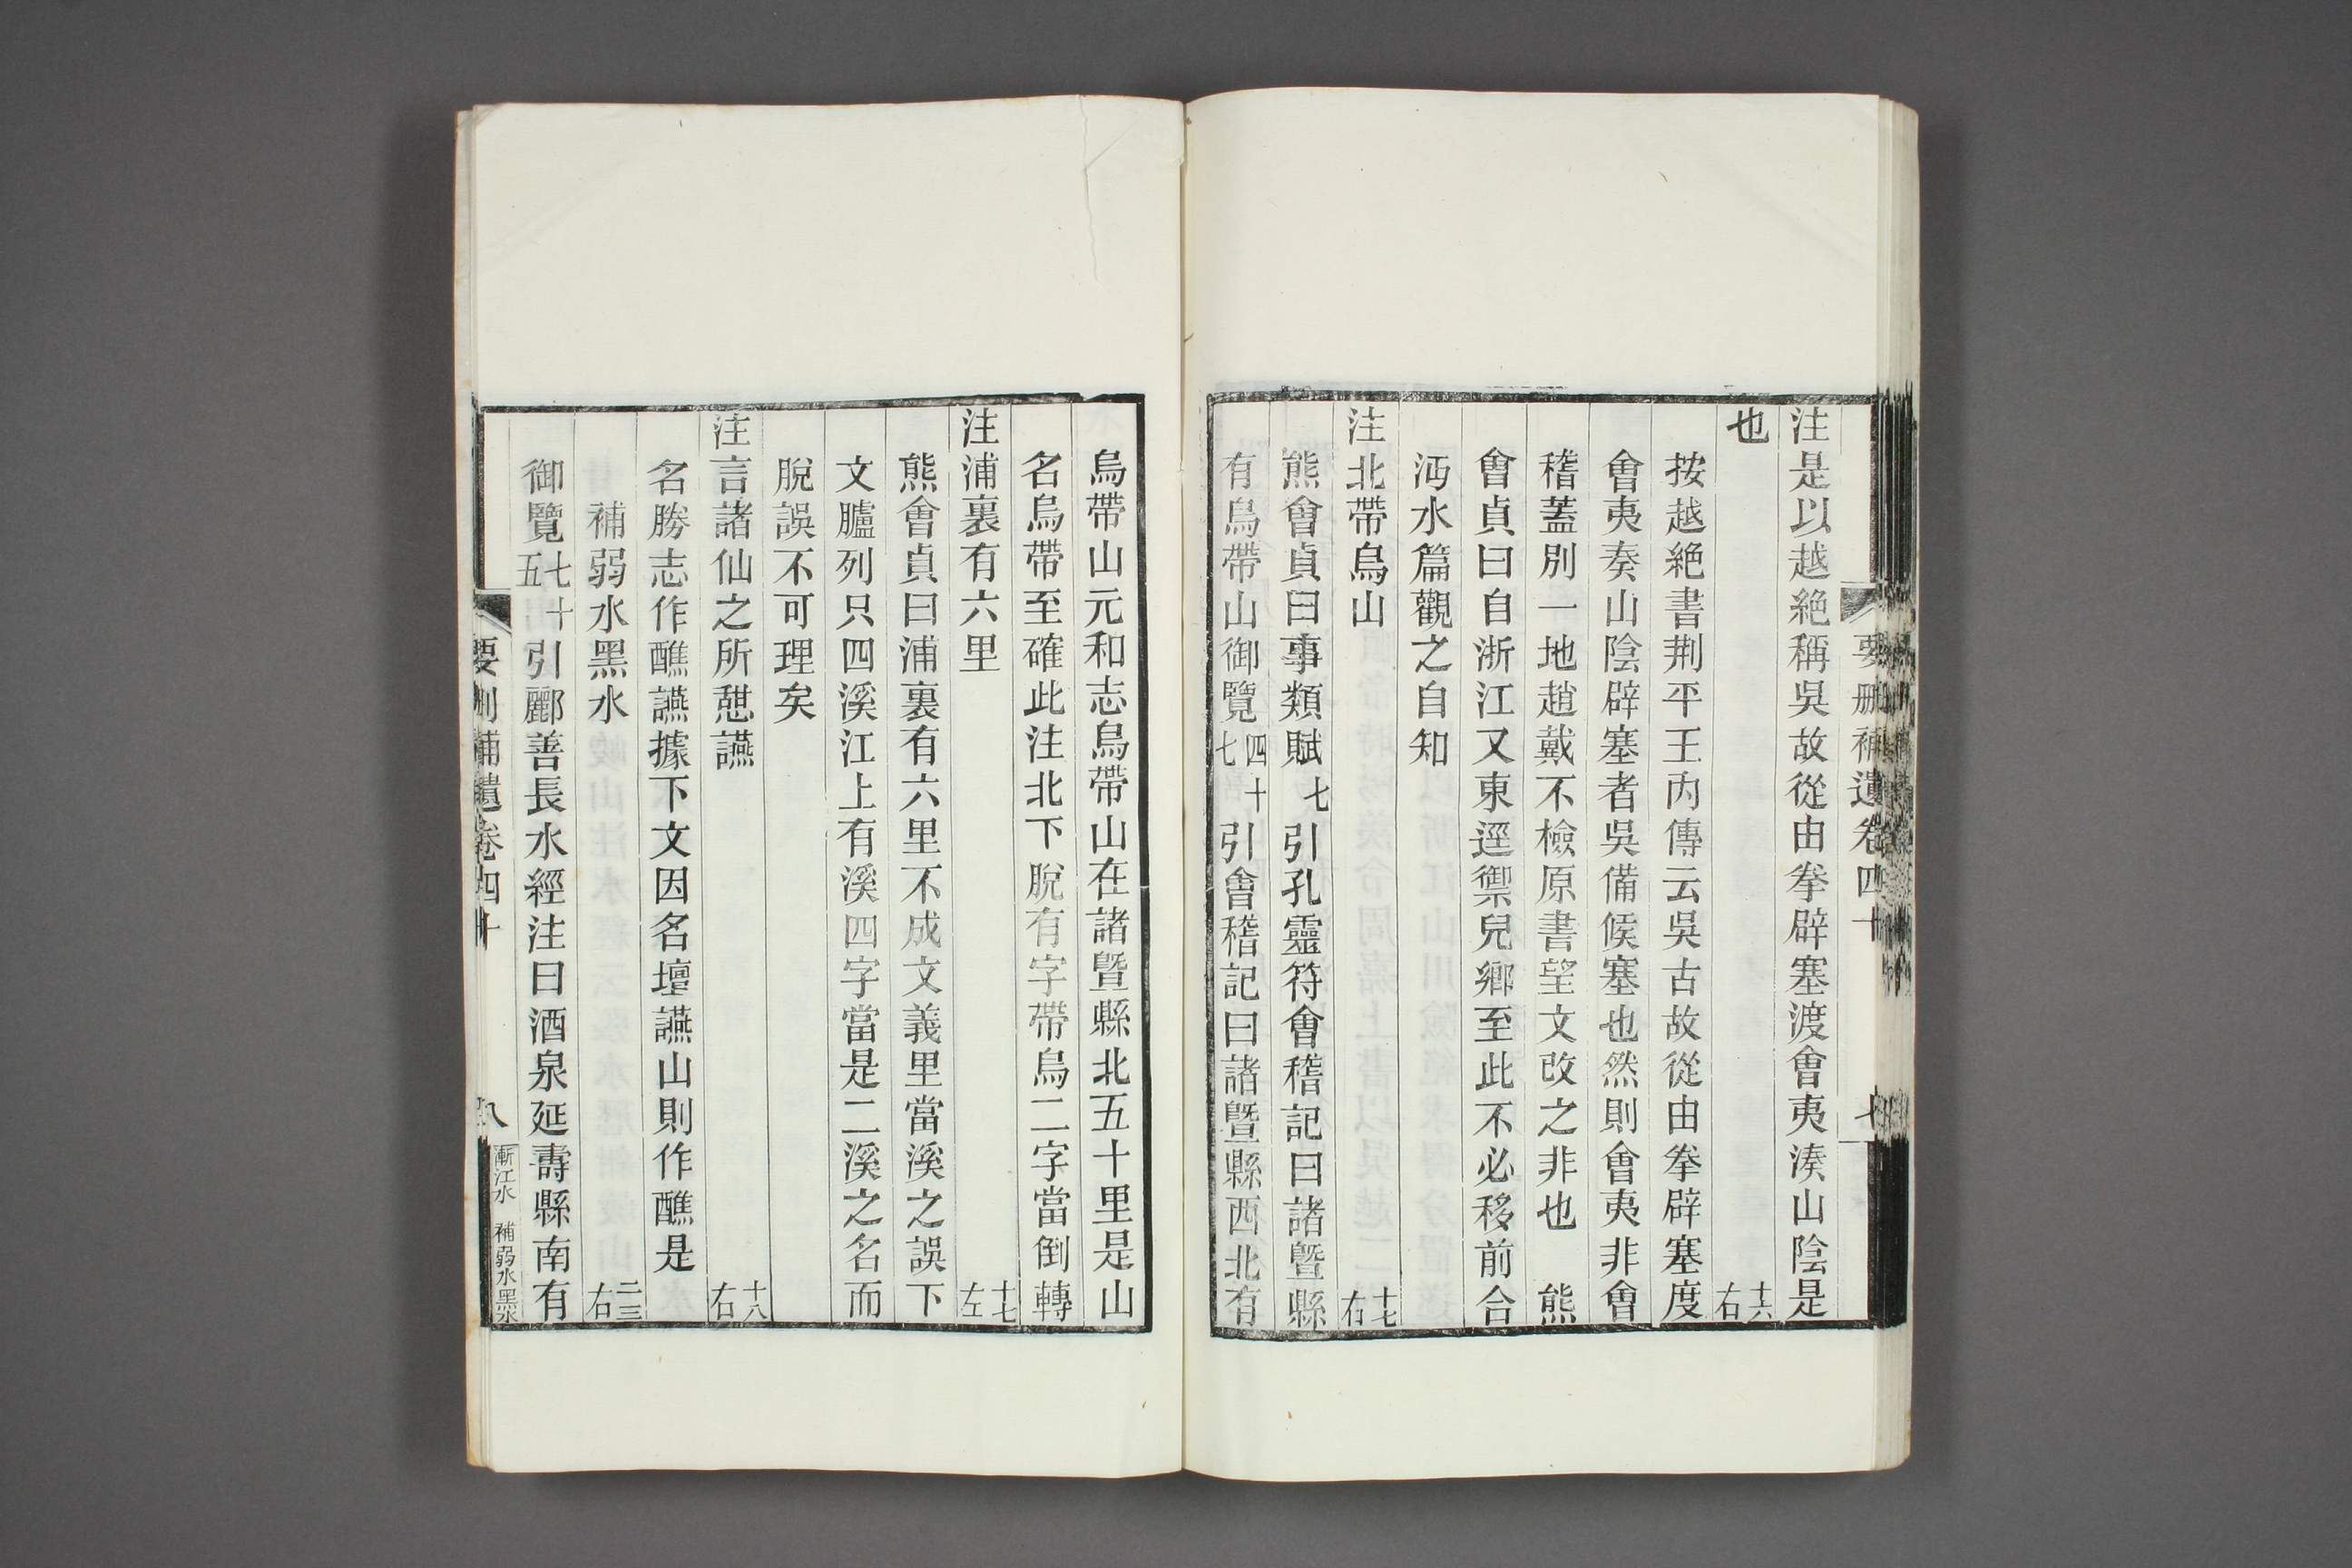 要刪補遺卷四十
七
注是以越絶稱吳故從由拳辟塞渡會夷湊山陰是
也 十六右
按越絶書荆平王内傳云吳古故從由拳辟塞度
會夷奏山陰辟塞者吳備候塞也然則會夷非會
稽蓋別一地趙戴不檢原書望文改之非也 熊
會貞曰自浙江又東逕禦兒鄉至此不必移前合
沔水篇觀之自知
注北帶烏山 十七右
熊會貞曰事類賦七引孔靈符會稽記曰諸曁縣
有烏帶山御覽四十七引會稽記曰諸曁縣西北有
烏帶山元和志烏帶山在諸曁縣北五十里是山
名烏帶至確此注北下脫有字帶烏二字當倒轉
注浦裏有六里 十七左
熊會貞曰浦裏有六里不成文義里當溪之誤下
文臚列只四溪江上有溪四字當是二溪之名而
脫誤不可理矣
注言諸仙之所憇讌 十八右
名勝志作醮讌據下文因名壇讌山則作醮是
補弱水黑水 二三右
御覽七十五引酈善長水經注曰酒泉延壽縣南有
要刪補遺卷四十
八
漸江水 補弱水黑水